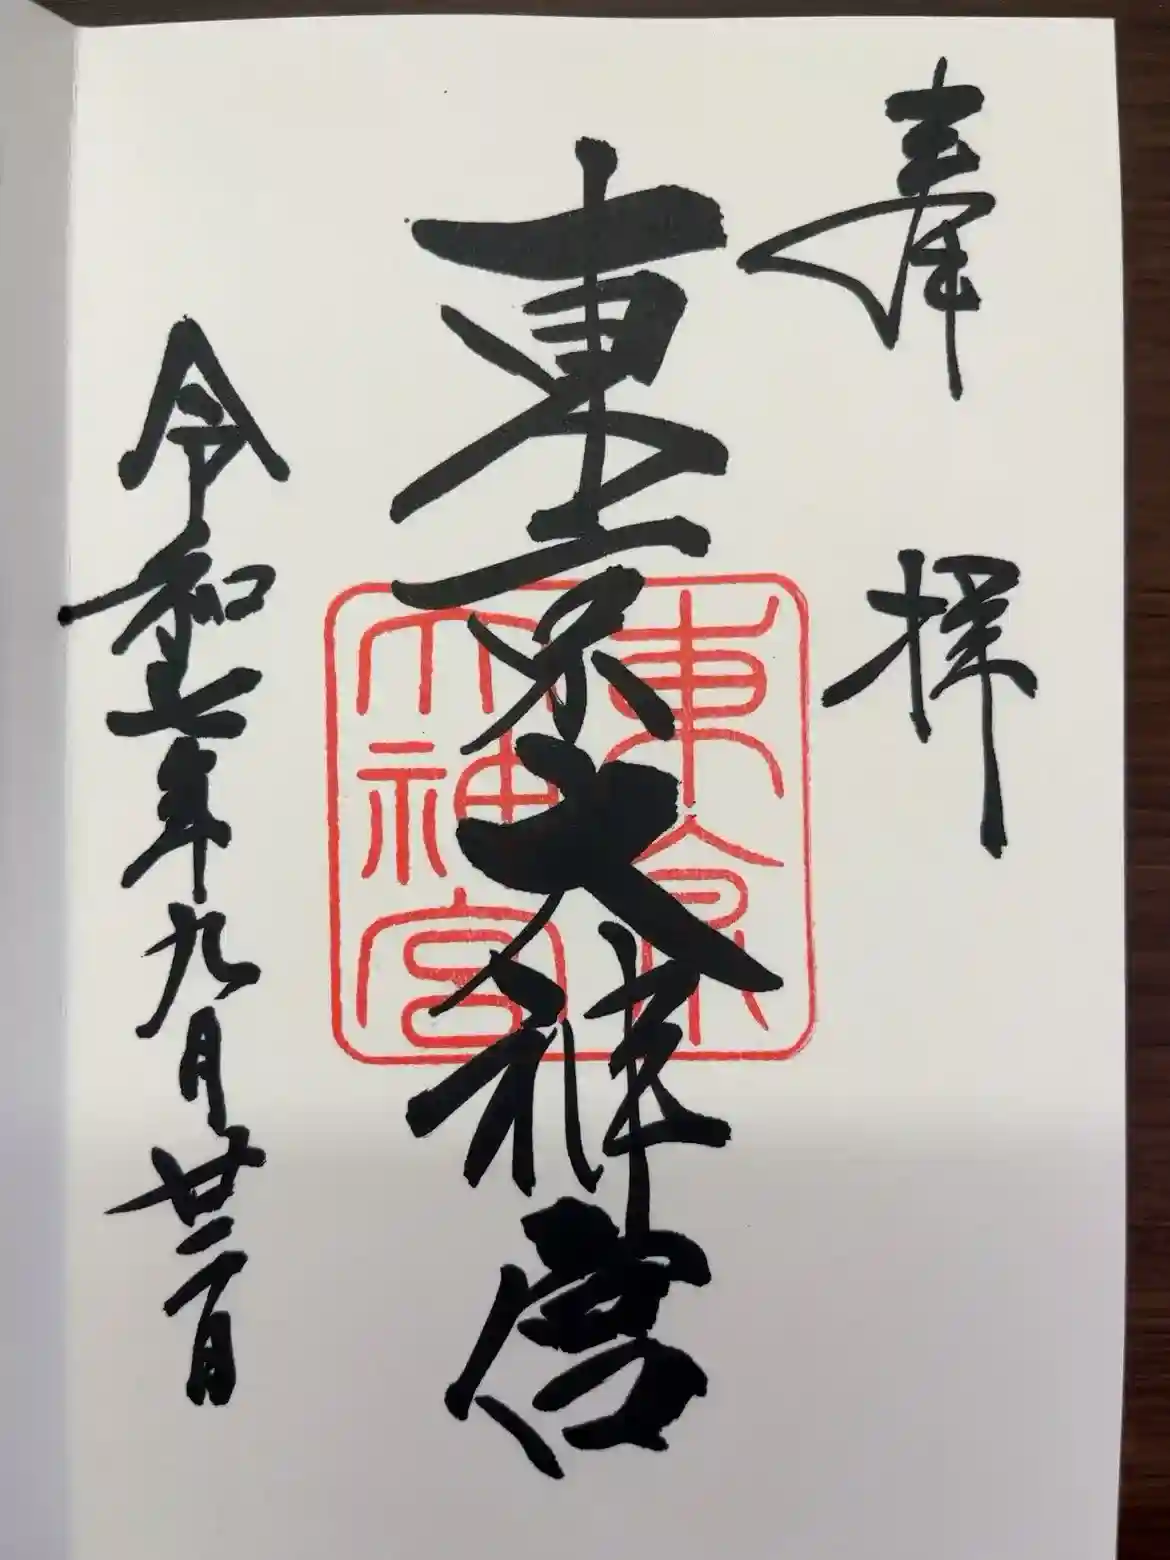 奉拝
東京大神宮
令和七年九月廿二日
東京
大神宮